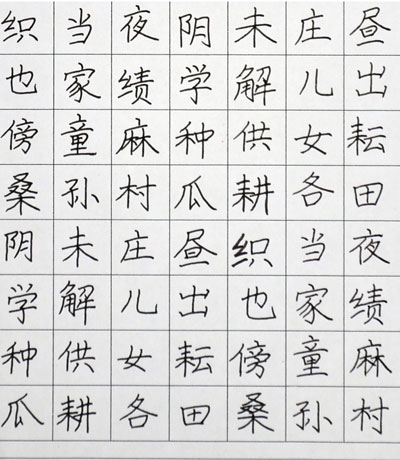 昼出耘田夜绩麻村
庄儿女各当家童孙
未解供耕织也傍桑
阴学种瓜昼出耘田
夜绩麻村庄儿女各
当家童孙未解供耕
织也傍桑阴学种瓜